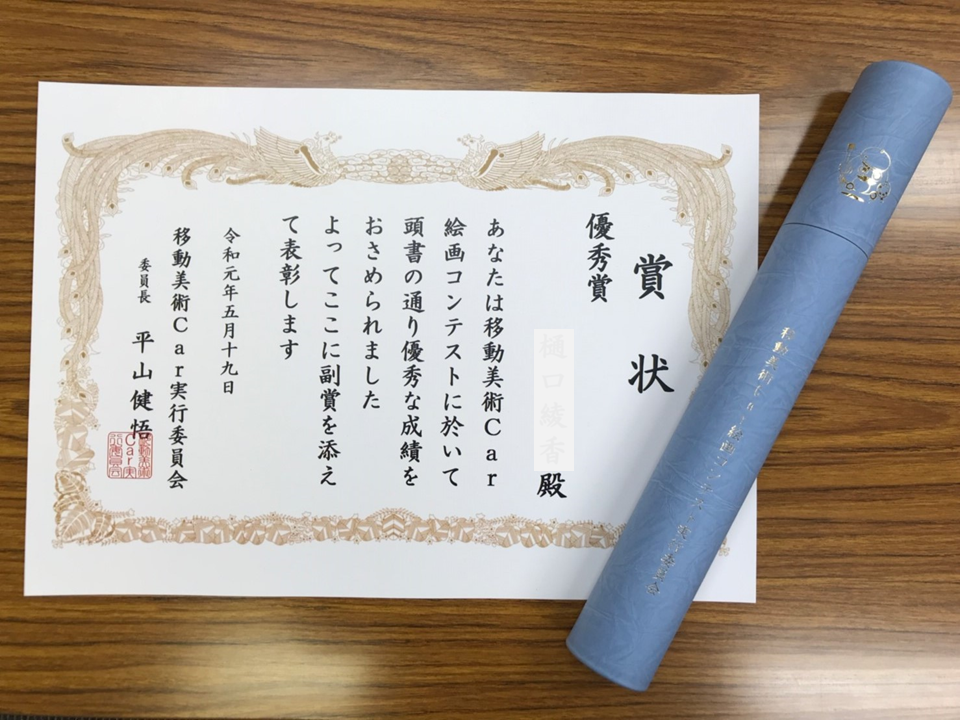 賞状
優秀賞
樋口綾香殿
あなたは移動美術Car
絵画コンテストに於いて
頭書の通り優秀な成績を
おさめられました
よってここに副賞を添え
て表彰します
令和元年五月十九日
移動美術Car実行委員会
委員長 平山健悟
移動美術Car絵画コンテスト実行委員会